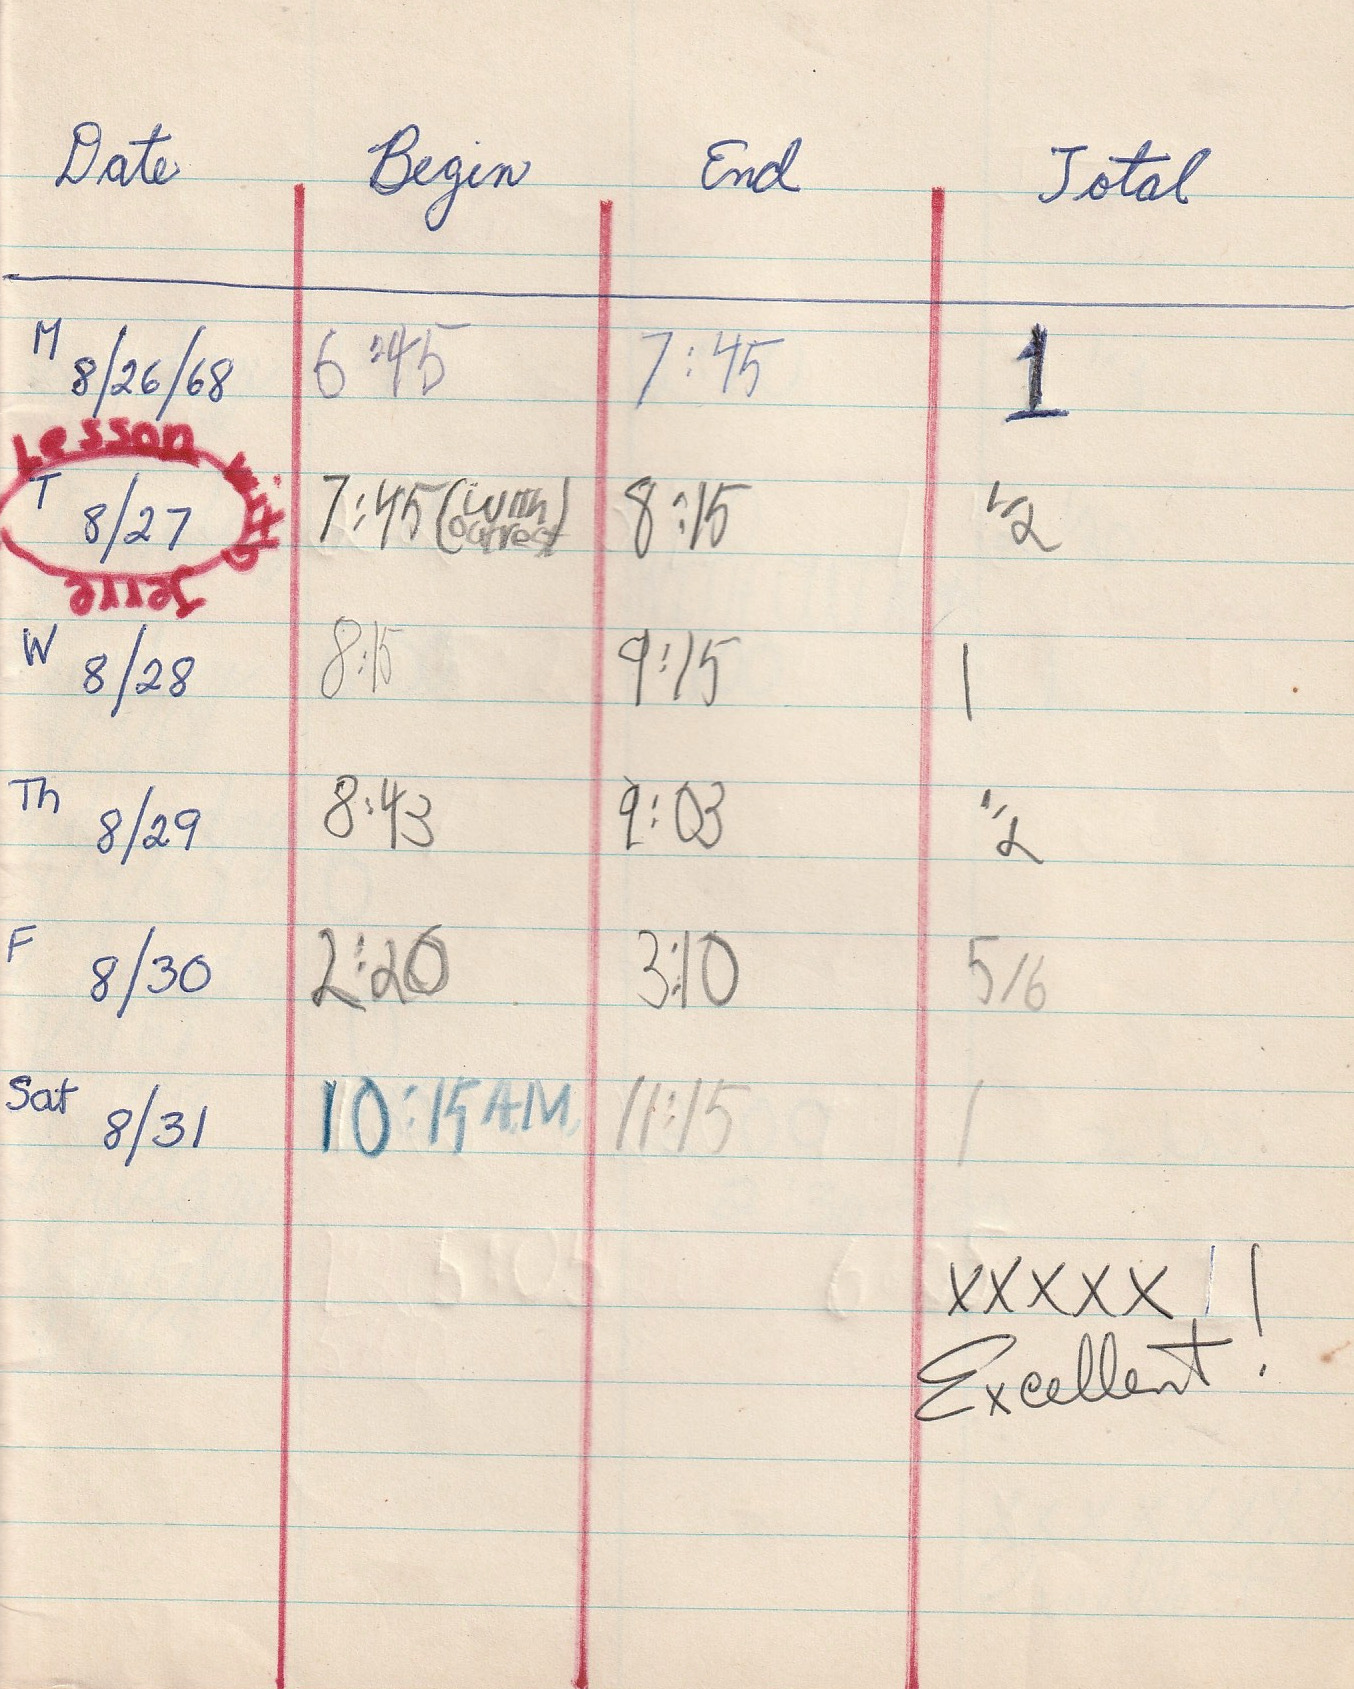 Date Begin End Total
M 8/26/68 6:45 7:45 1
Lesson with Jerre
T 8/27 7:45 (with 8:15 1/2
W 8/28 8:15 9:15 1
Th 8/29 8:43 9:03 1/2
F 8/30 2:20 3:10 5/6
Sat 8/31 10:15 A.M. 11:15 1
xxxxx !
Excellent!